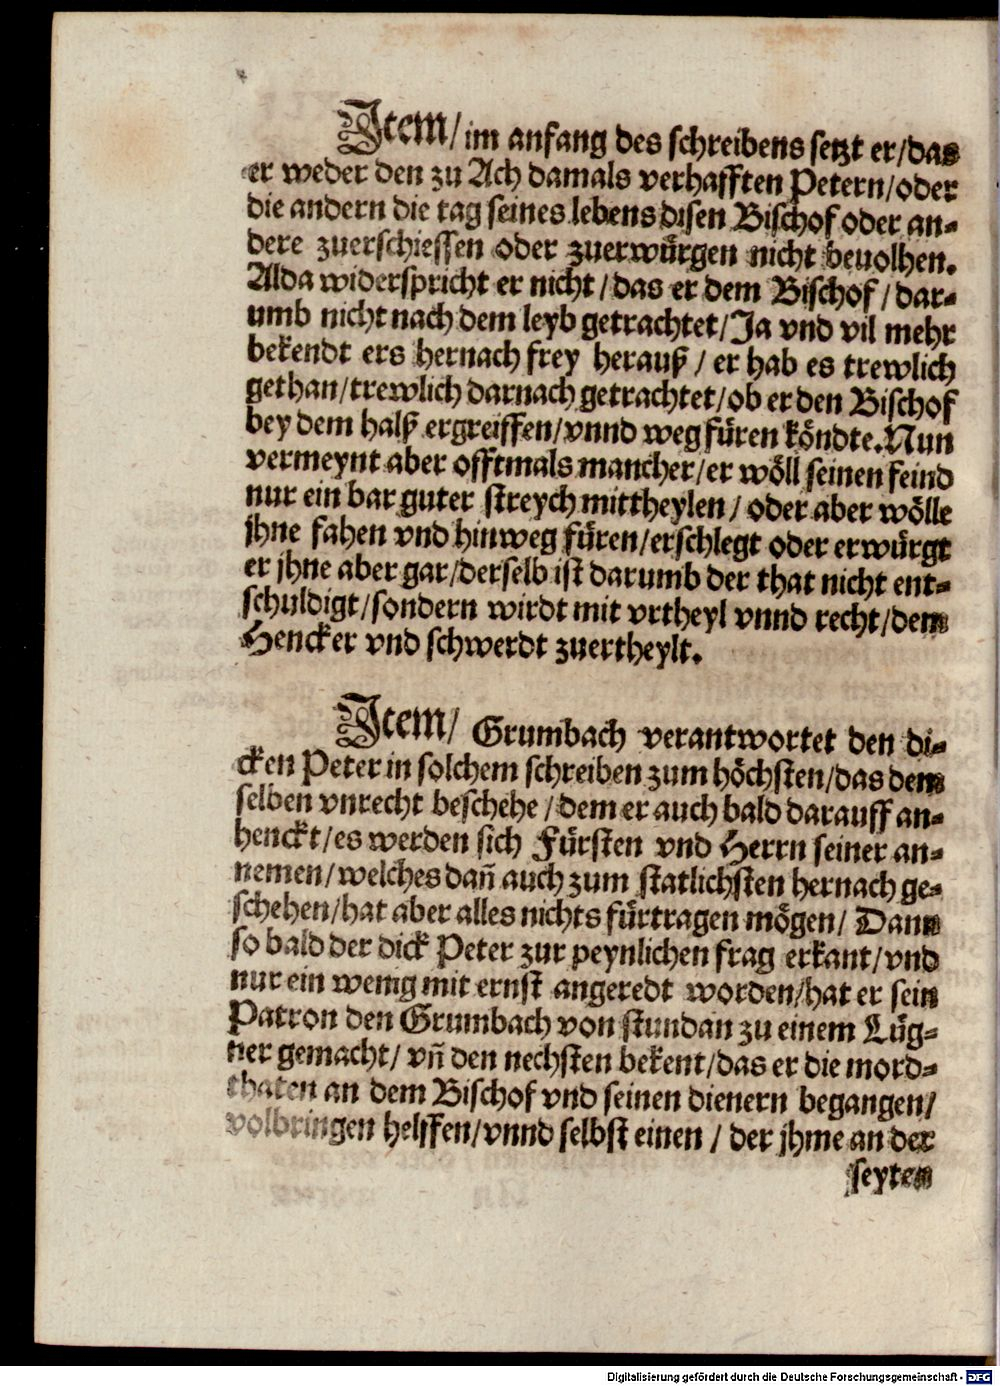 Item/ im anfang des schreibens setzt er/das
er weder den zu Ach damals verhafften Petern/oder
die andern die tag seines lebens disen Bischof oder an-
dere zuerschiessen oder zuerwürgen nicht beuolhen.
Alda widerspricht er nicht/das er dem Bischof/dar-
umb nicht nach dem leyb getrachtet/Ja vnd vil mehr
bekendt ers hernach frey herauß/er hab es trewlich
gethan/trewlich darnach getrachtet/ob er den Bischof
bey dem halß ergreiffen/vnnd weg füren köndte.Nun
vermeynt aber offtmals mancher/er wöll seinen feind
nur ein bar guter streych mittheylen/oder aber wölle
jhne fahen vnd hinweg füren/erschlegt oder erwürgt
er jhne aber gar/derselb ist darumb der that nicht ent-
schuldigt/sondern wirdt mit vrtheyl vnnd recht/dem
Hencker vnd schwerdt zuertheylt.
Item/ Grumbach verantwortet den di-
cken Peter in solchem schreiben zum höchsten/das dem
selben vnrecht beschehe/dem er auch bald darauff an-
henckt/es werden sich Fürsten vnd Herrn seiner an-
nemen/welches dañ auch zum statlichsten hernach ge-
schehen/hat aber alles nichts fürtragen mögen/ Dann
so bald der dick Peter zur peynlichen frag erkant/vnd
nur ein wenig mit ernst angeredt worden/hat er sein
Patron den Grumbach von stundan zu einem Lüg-
ner gemacht/ vñ den nechsten bekent/das er die mord-
thaten an dem Bischof vnd seinen dienern begangen/
volbringen helffen/vnnd selbst einen / der jhme an der
seyten
Digitalisierung gefördert durch die Deutsche Forschungsgemeinschaft - DFG